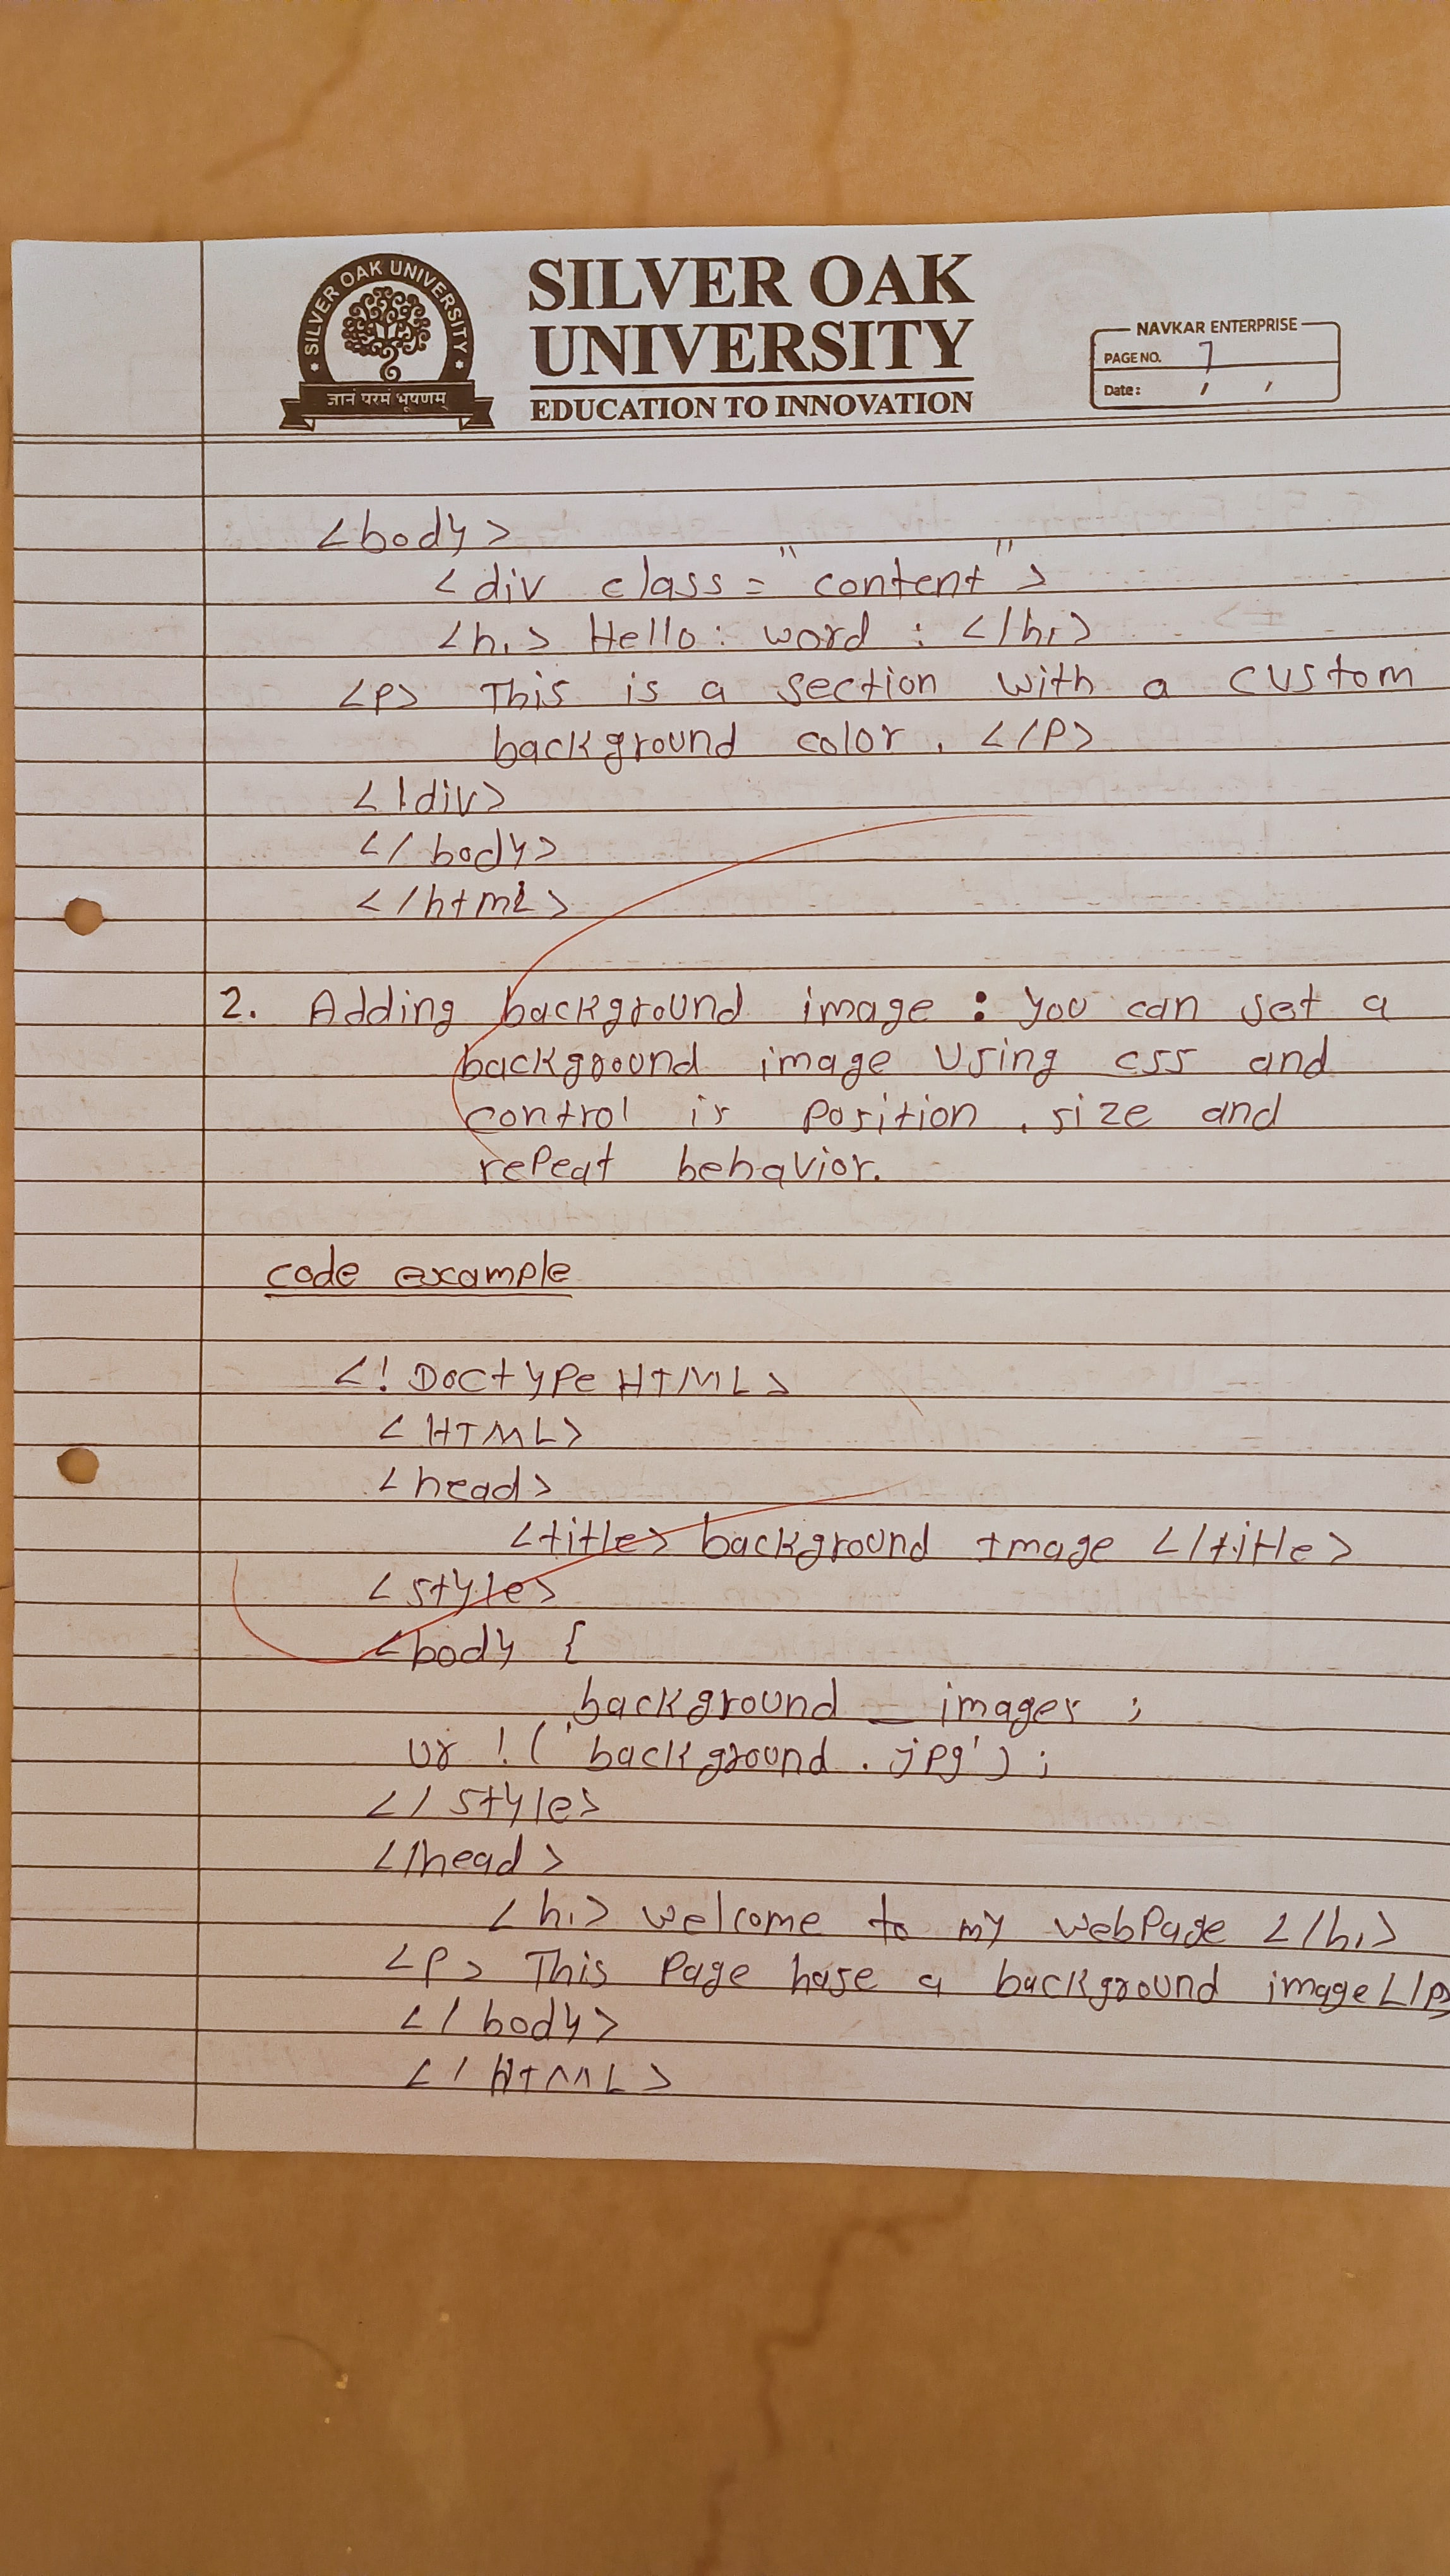 SILVER OAK UNIVERSITY
ज्ञानं परमं भूषणम्
SILVER OAK
UNIVERSITY
EDUCATION TO INNOVATION
NAVKAR ENTERPRISE
PAGE NO. 7
Date: / /
<body>
<div class = "content">
<h1> Hello : word : </h1>
<p> This is a section with a custom
background color . </p>
</div>
</body>
</html>
2. Adding background image : you can set a
background image using css and
control is position , size and
repeat behavior.
code example
<! Doctype HTML>
<HTML>
<head>
<title> background Image </title>
<style>
<body {
background _ images ;
ur ! ( 'background . jpg' ) ;
</style>
</head>
<h1> welcome to my webpage </h1>
<p> This page hase a background image </p>
</body>
</HTML>